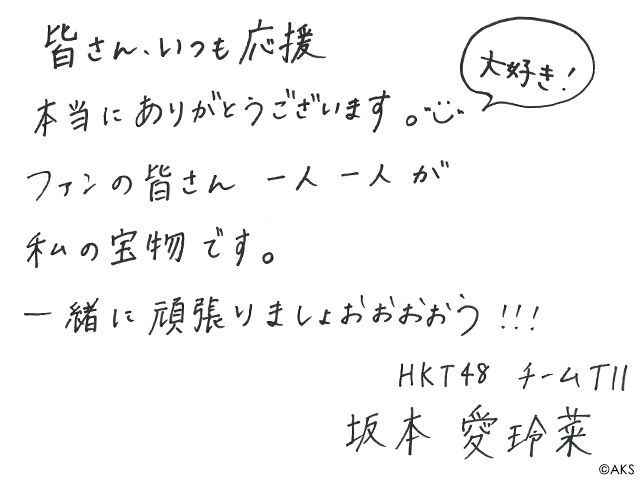 皆さん、いつも応援
大好き!
本当にありがとうございます。
ファンの皆さん 一人一人が
私の宝物です。
一緒に頑張りましょおおおおう!!!
HKT48 チームTII
坂本 愛玲菜
©AKS